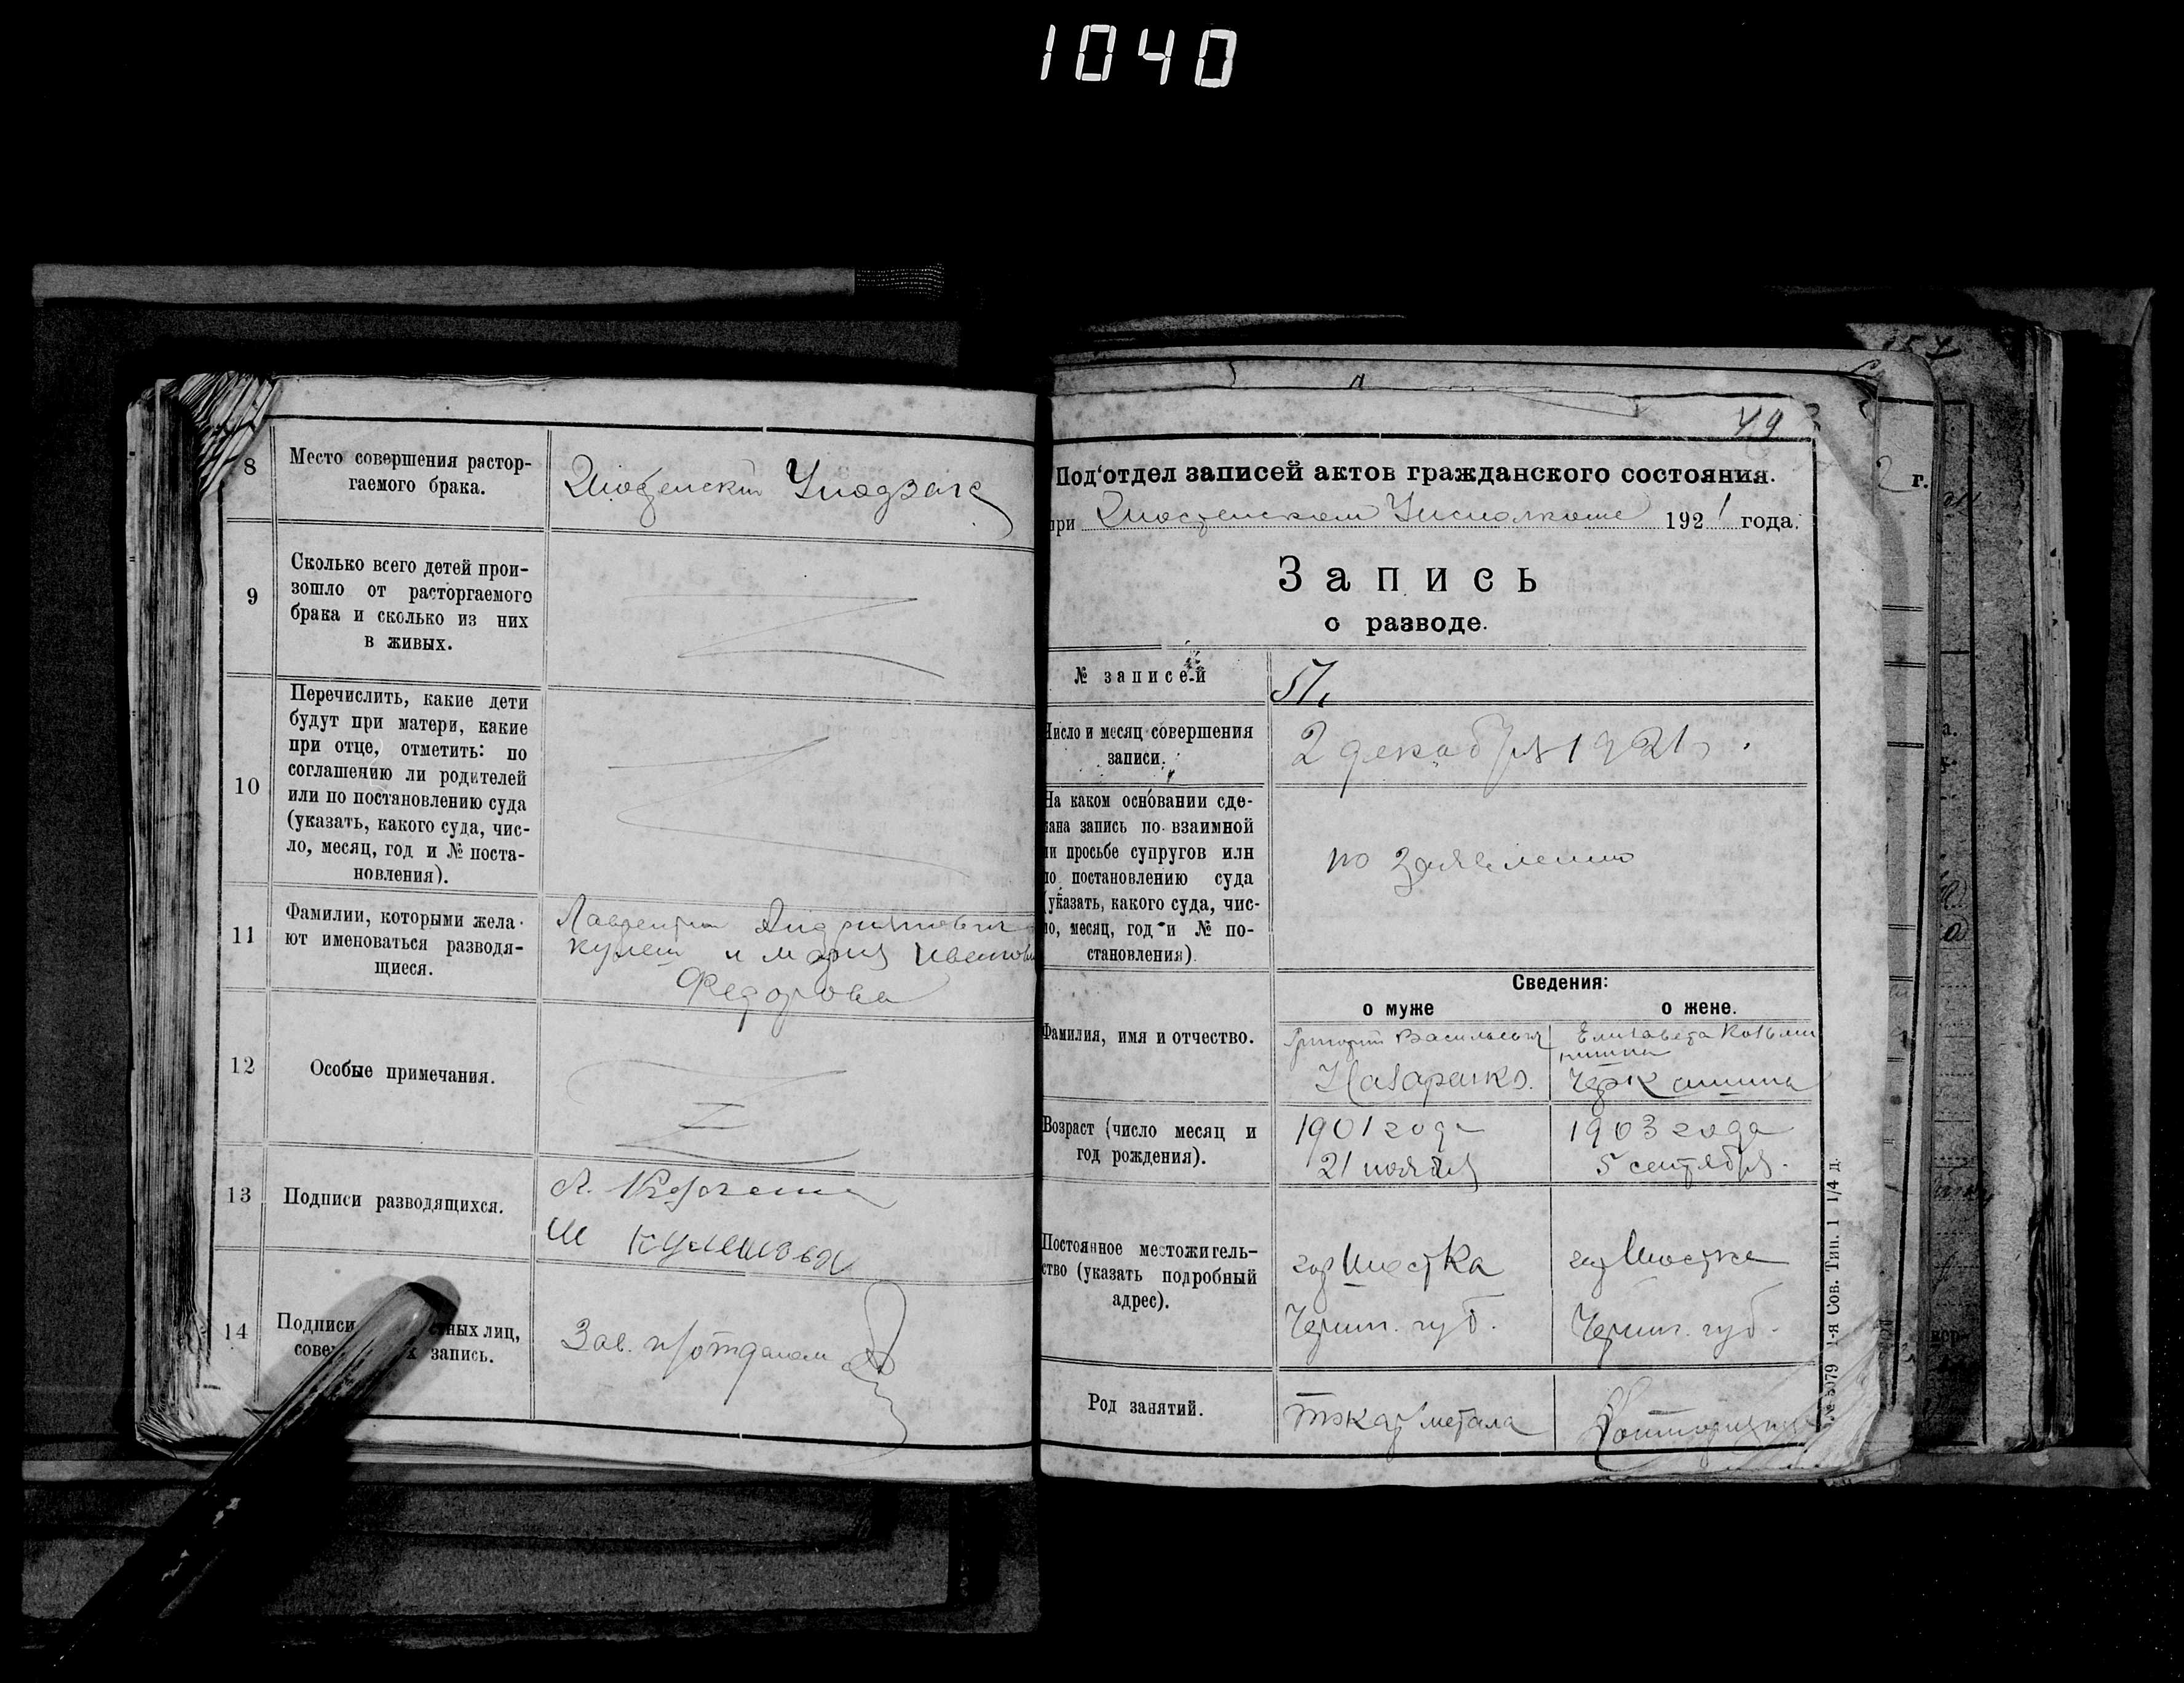 1040
8
Место совершения растор-
гаемого брака.
9
Сколько всего детей прои-
зошло от расторгаемого
брака и сколько из них
в живых.
10
Перечислить, какие дети
будут при матери, какие
при отце, отметить: по
соглашению ли родителей
или по постановлению суда
(указать, какого суда, чис-
ло, месяц, год и № поста-
новления).
11
Фамилии, которыми жела-
ют именоваться разводя-
щиеся.
Кулеш и Мария Иванов
Федорова
12
Особые примечания.
13
Подписи разводящихся.
М Кулешова
14
Подписи ных лиц,
запись.
Зав. п/отделом
49
Под'отдел записей актов гражданского состояния.
при 1921 года.
Запись
о разводе.
№ записей
51,
Число и месяц совершения
записи.
2 декабря 1921 г.
На каком основании сде-
лана запись по взаимной
ли просьбе супругов или
по постановлению суда
(указать, какого суда, чис-
ло, месяц, год и № по-
становления)
по заявлению
Сведения:
о муже
о жене.
Фамилия, имя и отчество.
Григорий Васильевич
Назаренко.
Елизавета Козьми
нишна
Возраст (число месяц и
год рождения).
1901 года
21 ноября
1903 года
5 сентября.
Постоянное местожитель-
ство (указать подробный
адрес).
гор Шостка
Черниг. губ.
гор Шостка
Черниг. губ.
Род занятий.
токар метала
1-я Сов. Тип. 1 1/4 д.
2 г.